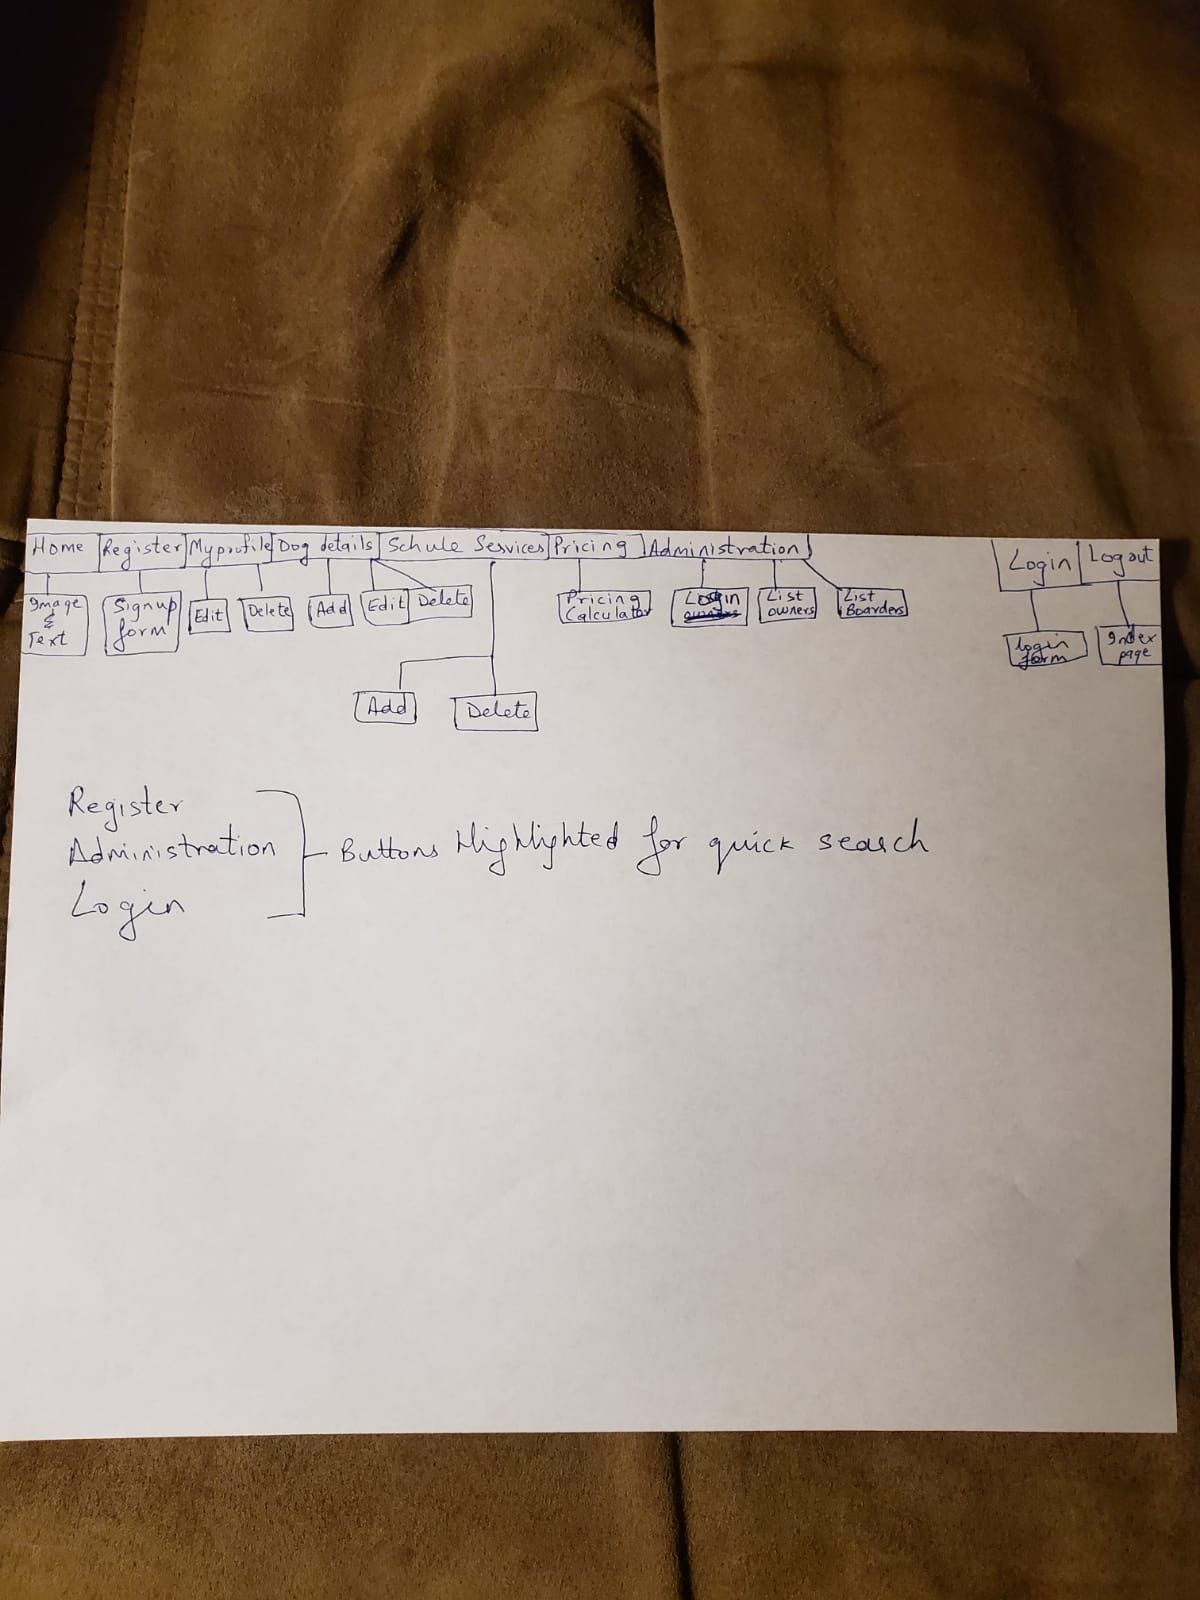 Home Register My profile Dog details Schule Services Pricing Administration Login Logout
Image & Text
Signup form
Edit
Delete
Add
Edit
Delete
Pricing Calculator
Login
List owners
List Boarders
login form
Index page
Add
Delete
Register
Administration
Login
Buttons Highlighted for quick search